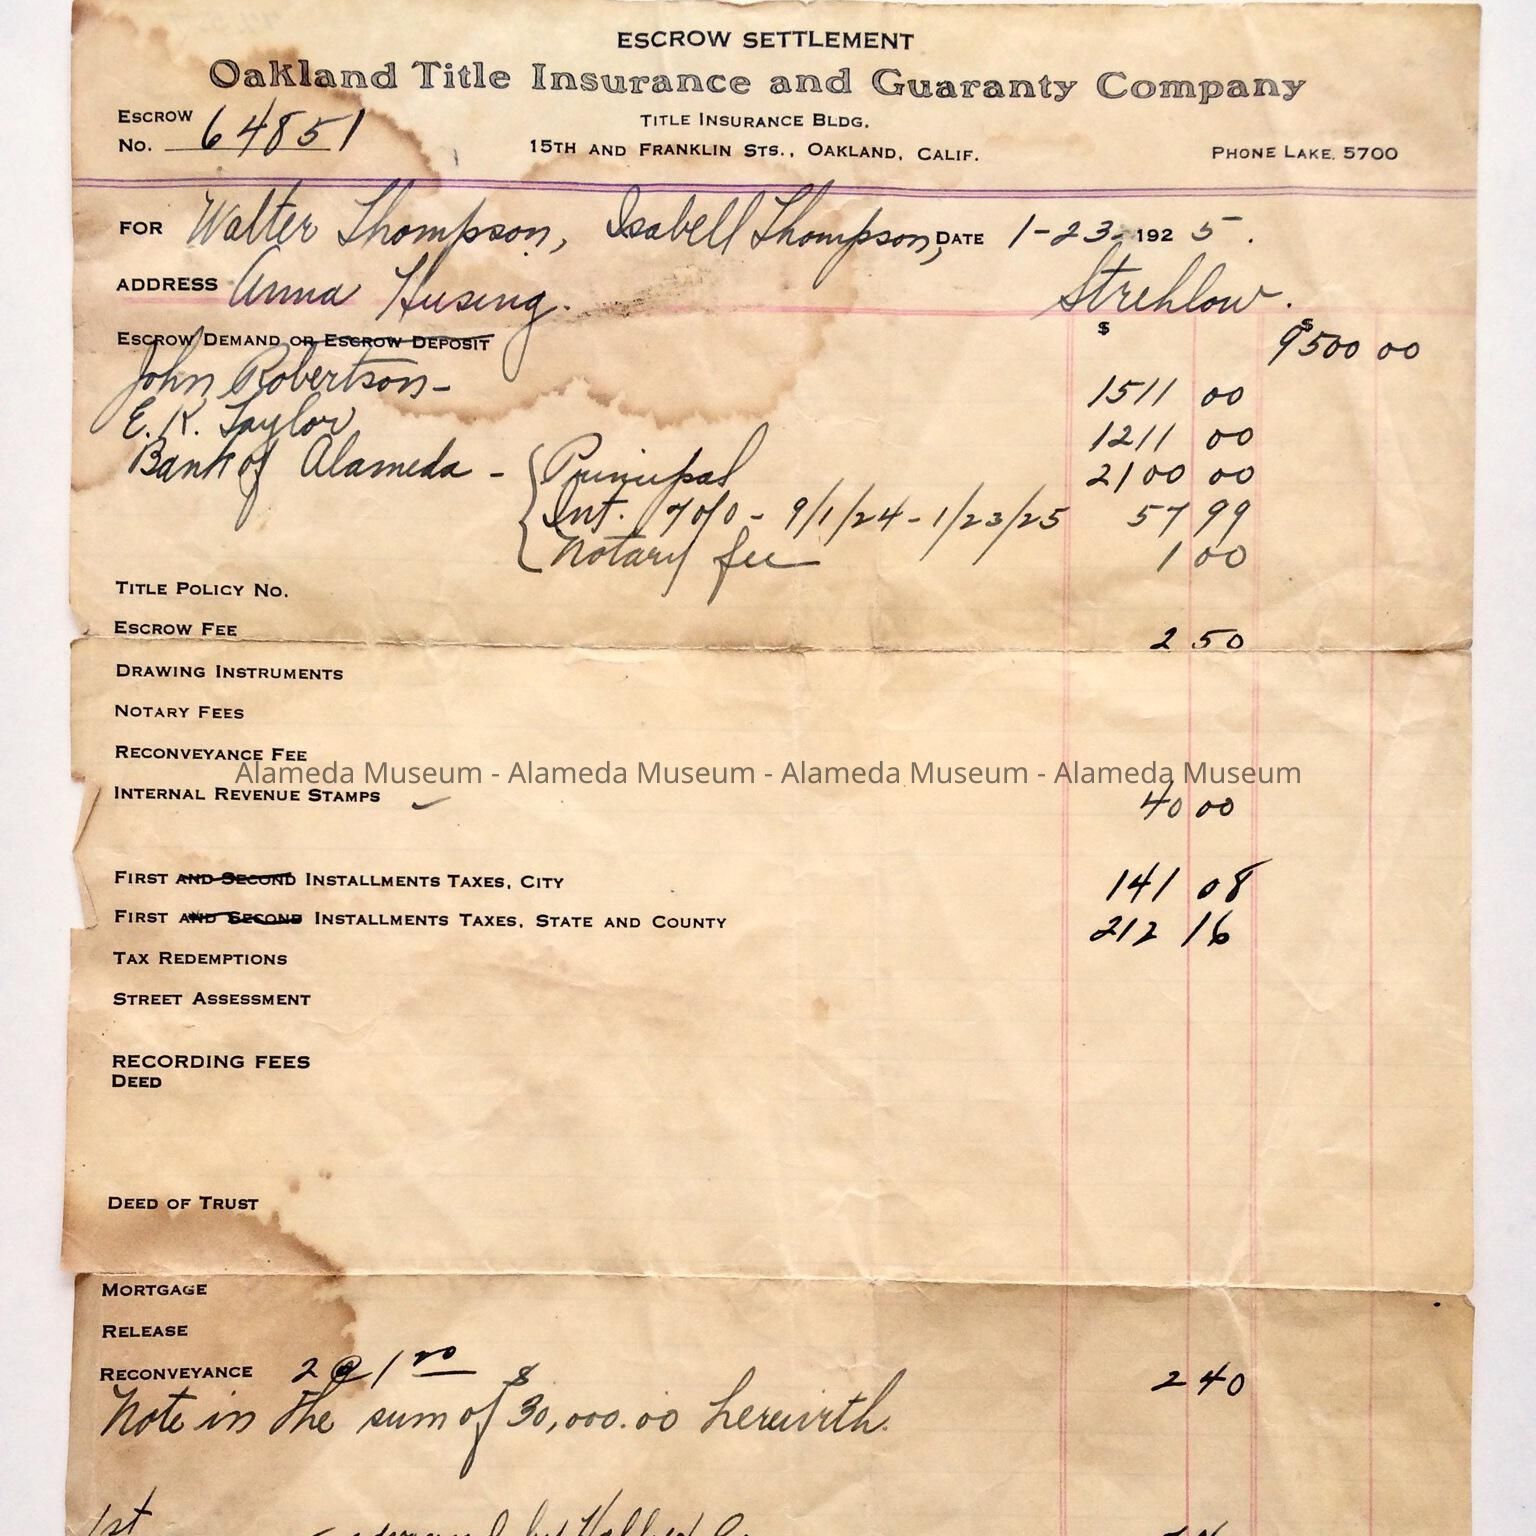 ESCROW SETTLEMENT
Oakland Title Insurance and Guaranty Company
ESCROW NO. 64851
TITLE INSURANCE BLDG.
15TH AND FRANKLIN STS., OAKLAND, CALIF.
PHONE LAKE. 5700
FOR Walter Thompson, Isabell Thompson, DATE 1-23- 192 5.
ADDRESS Anna Husing. Strehlow.
ESCROW DEMAND OR ESCROW DEPOSIT $ $ 9500 00
John Robertson- 1511 00
E. K. Taylor 1211 00
Bank of Alameda - { Principal 2100 00
Int. 7 o/o - 9/1/24 - 1/23/25 57 99
Notary fee 1 00
TITLE POLICY NO.
ESCROW FEE 2 50
DRAWING INSTRUMENTS
NOTARY FEES
RECONVEYANCE FEE
Alameda Museum - Alameda Museum - Alameda Museum - Alameda Museum
INTERNAL REVENUE STAMPS 40 00
FIRST AND SECOND INSTALLMENTS TAXES, CITY 141 08
FIRST AND SECOND INSTALLMENTS TAXES, STATE AND COUNTY 212 16
TAX REDEMPTIONS
STREET ASSESSMENT
RECORDING FEES
DEED
DEED OF TRUST
MORTGAGE
RELEASE
RECONVEYANCE 2 @ 1 20 2 40
Note in the sum of $30,000.00 herewith.
1st